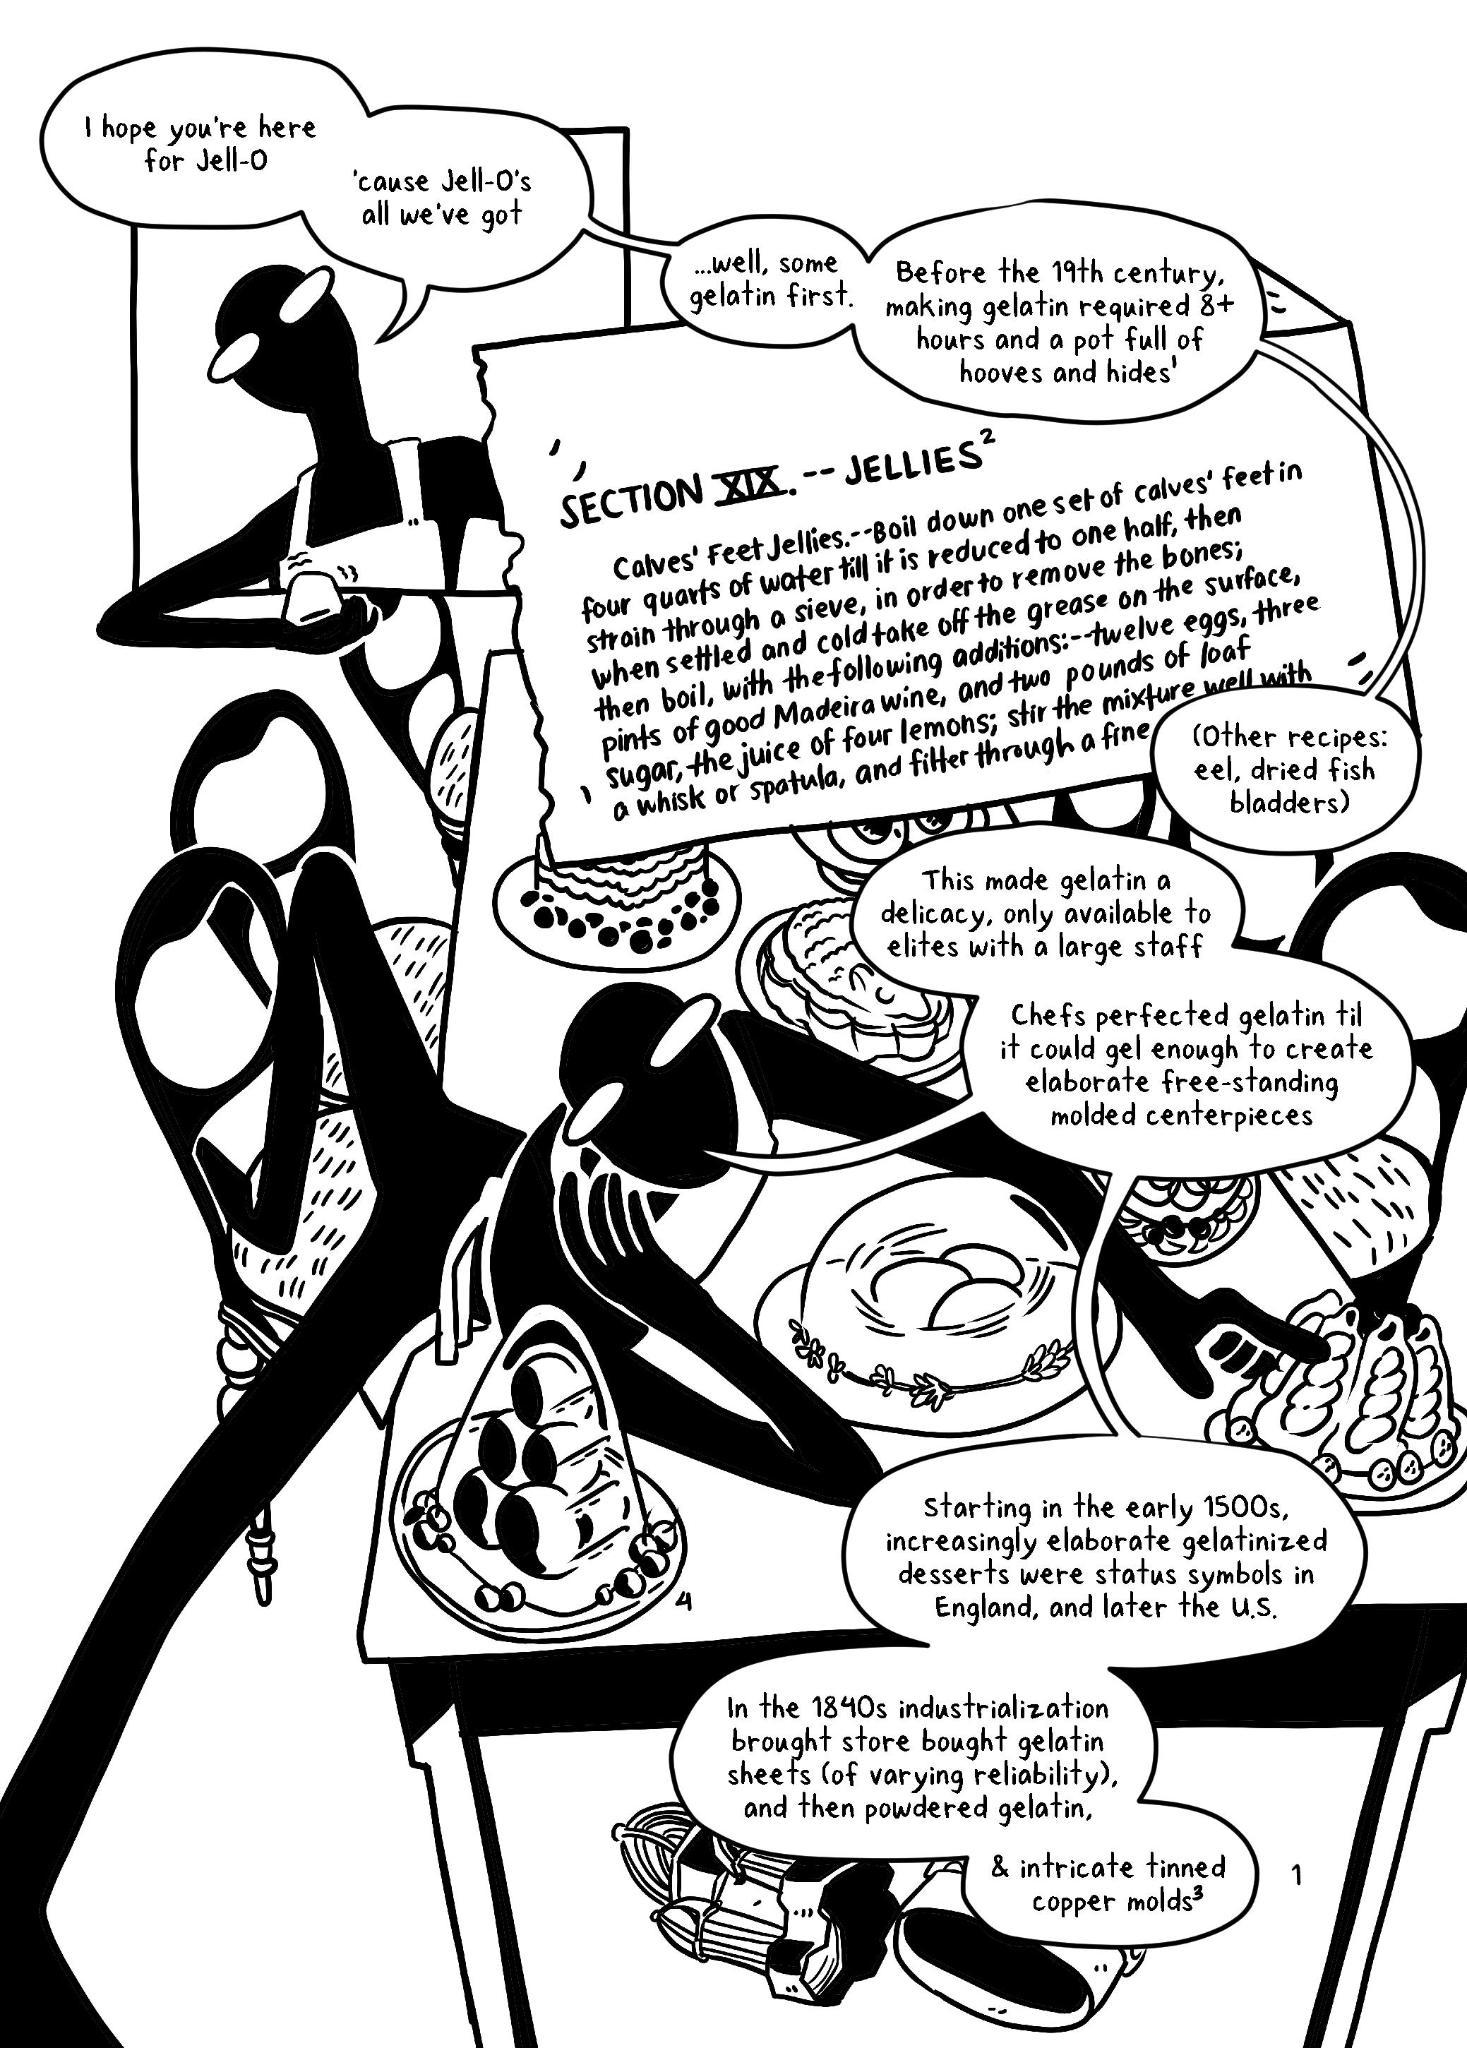 I hope you're here
for Jell-O
'cause Jell-O's
all we've got
...well, some
gelatin first.
Before the 19th century,
making gelatin required 8+
hours and a pot full of
hooves and hides¹
SECTION XIX. -- JELLIES²
Calves' Feet Jellies.--Boil down one set of calves' feet in
four quarts of water till it is reduced to one half, then
strain through a sieve, in order to remove the bones;
when settled and cold take off the grease on the surface,
then boil, with the following additions:--twelve eggs, three
pints of good Madeira wine, and two pounds of loaf
sugar, the juice of four lemons; stir the mixture well with
a whisk or spatula, and filter through a fine
(Other recipes:
eel, dried fish
bladders)
This made gelatin a
delicacy, only available to
elites with a large staff
Chefs perfected gelatin til
it could gel enough to create
elaborate free-standing
molded centerpieces
Starting in the early 1500s,
increasingly elaborate gelatinized
desserts were status symbols in
England, and later the U.S.
4
In the 1840s industrialization
brought store bought gelatin
sheets (of varying reliability),
and then powdered gelatin,
& intricate tinned
copper molds³
1